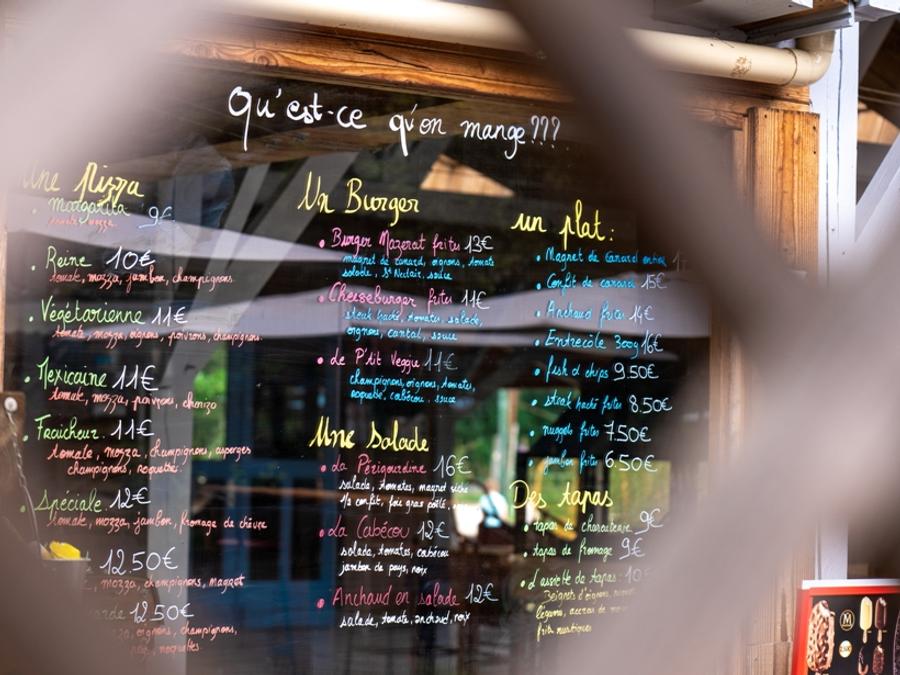 Qu'est-ce qu'on mange???
Une Pizza
Margarita 9€
tomate, mozza
Reine 10€
tomate, mozza, jambon, champignons
Végétarienne 11€
tomate, mozza, oignons, poivrons, champignons
Mexicaine 11€
tomate, mozza, poivrons, chorizo
Fraîcheur 11€
tomate, mozza, champignons, asperges
champignons, roquette
Spéciale 12€
tomate, mozza, jambon, fromage de chèvre
12.50€
mozza, champignons, magret
12.50€
oignons, champignons,
noix, roquette
Un Burger
Burger Mazerat frites 13€
magret de canard, oignons, tomate
salade, St Nectair, sauce
Cheeseburger frites 11€
steak haché, tomates, salade,
oignons, cantal, sauce
Le P'tit Veggie 11€
champignons, oignons, tomates,
roquette, cabécou, sauce
Une Salade
La Périgourdine 16€
salade, tomates, magret séché
1/2 confit, foie gras poêlé
La Cabécou 12€
salade, tomates, cabécou
jambon de pays, noix
Anchaud en salade 12€
salade, tomate, anchaud, noix
un plat:
Magret de canard entier
Confit de canard 15€
Anchaud frites 14€
Entrecôte 300g 16€
fish & chips 9.50€
steak haché frites 8.50€
nuggets frites 7.50€
jambon frites 6.50€
Des tapas
tapas de charcuterie 9€
tapas de fromage 9€
L'assiette de tapas: 10.5
Beignets d'oignons,
légumes, accras de
frites rustiques
M